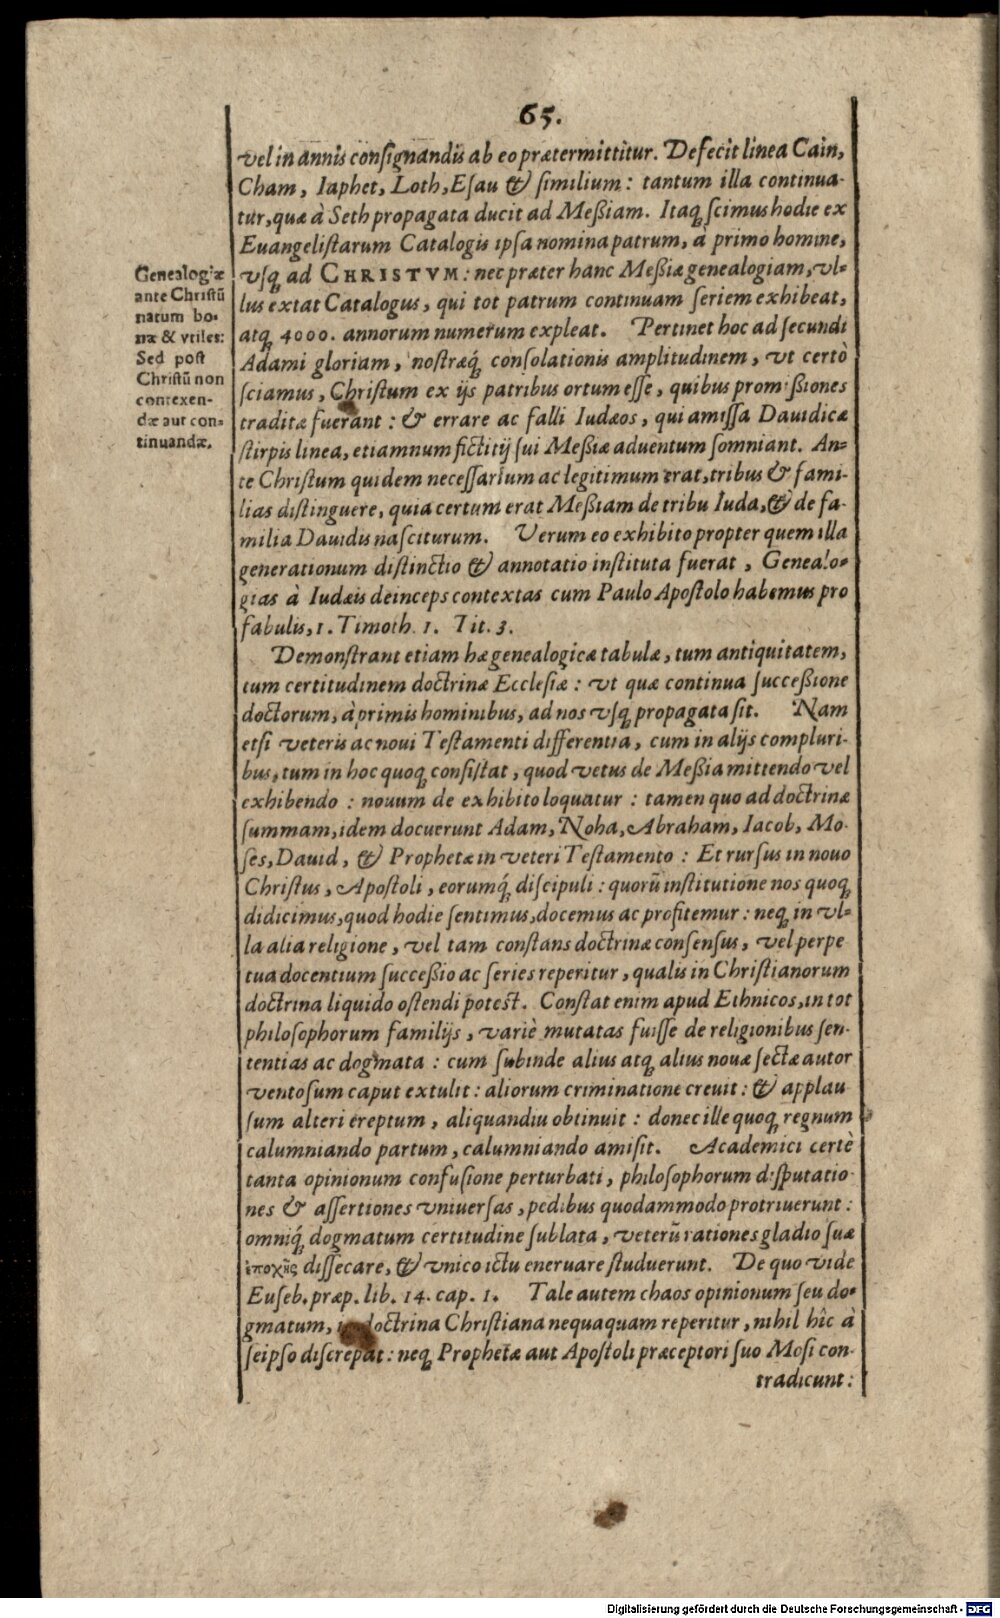 65.
vel in annis consignandis ab eo prætermittitur. Defecit linea Cain,
Cham, Iaphet, Loth, Esau & similium: tantum illa continua-
tur, quæ à Seth propagata ducit ad Meßiam. Itaq; scimus hodie ex
Euangelistarum Catalogis ipsa nomina patrum, à primo homine,
vsq; ad CHRISTVM: nec præter hanc Meßiæ genealogiam, vl-
lus extat Catalogus, qui tot patrum continuam seriem exhibeat,
atq; 4000. annorum numerum expleat. Pertinet hoc ad secundi
Adami gloriam, nostræq́; consolationis amplitudinem, vt certò
sciamus, Christum ex ijs patribus ortum esse, quibus promißiones
traditæ fuerant: & errare ac falli Iudæos, qui amissa Dauidicæ
stirpis linea, etiamnum fictitij sui Meßiæ aduentum somniant. An-
te Christum quidem necessarium ac legitimum erat, tribus & fami-
lias distinguere, quia certum erat Meßiam de tribu Iuda, & de fa-
milia Dauidis nasciturum. Verum eo exhibito propter quem illa
generationum distinctio & annotatio instituta fuerat, Genealo-
gias à Iudæis deinceps contextas cum Paulo Apostolo habemus pro
fabulis, 1. Timoth. 1. Tit. 3.
Genealogiæ
ante Christū
natum bo-
næ & vtiles:
Sed post
Christū non
contexen-
dæ aut con-
tinuandæ.
Demonstrant etiam hæ genealogicæ tabulæ, tum antiquitatem,
tum certitudinem doctrinæ Ecclesiæ: vt quæ continua succeßione
doctorum, à primis hominibus, ad nos vsq; propagata sit. Nam
etsi veteris ac noui Testamenti differentia, cum in alijs compluri-
bus, tum in hoc quoq; consistat, quod vetus de Meßia mittendo vel
exhibendo: nouum de exhibito loquatur: tamen quo ad doctrinæ
summam, idem docuerunt Adam, Noha, Abraham, Iacob, Mo-
ses, Dauid, & Prophetæ in veteri Testamento: Et rursus in nouo
Christus, Apostoli, eorumq́; discipuli: quorū institutione nos quoq;
didicimus, quod hodie sentimus, docemus ac profitemur: neq; in vl-
la alia religione, vel tam constans doctrinæ consensus, vel perpe
tua docentium succeßio ac series reperitur, qualis in Christianorum
doctrina liquido ostendi potest. Constat enim apud Ethnicos, in tot
philosophorum familijs, variè mutatas fuisse de religionibus sen-
tentias ac dogmata: cum subinde alius atq; alius nouæ sectæ autor
ventosum caput extulit: aliorum criminatione creuit: & applau
sum alteri ereptum, aliquandiu obtinuit: donec ille quoq; regnum
calumniando partum, calumniando amisit. Academici certè
tanta opinionum confusione perturbati, philosophorum disputatio-
nes & assertiones vniuersas, pedibus quodammodo protriuerunt:
omniq́; dogmatum certitudine sublata, veterū rationes gladio suæ
ἐποχῆς dissecare, & vnico ictu eneruare studuerunt. De quo vide
Euseb. præp. lib. 14. cap. 1. Tale autem chaos opinionum seu do-
gmatum, in doctrina Christiana nequaquam reperitur, nihil hîc à
seipso discrepat: neq; Prophetæ aut Apostoli præceptori suo Mosi con-
tradicunt:
Digitalisierung gefördert durch die Deutsche Forschungsgemeinschaft - DFG